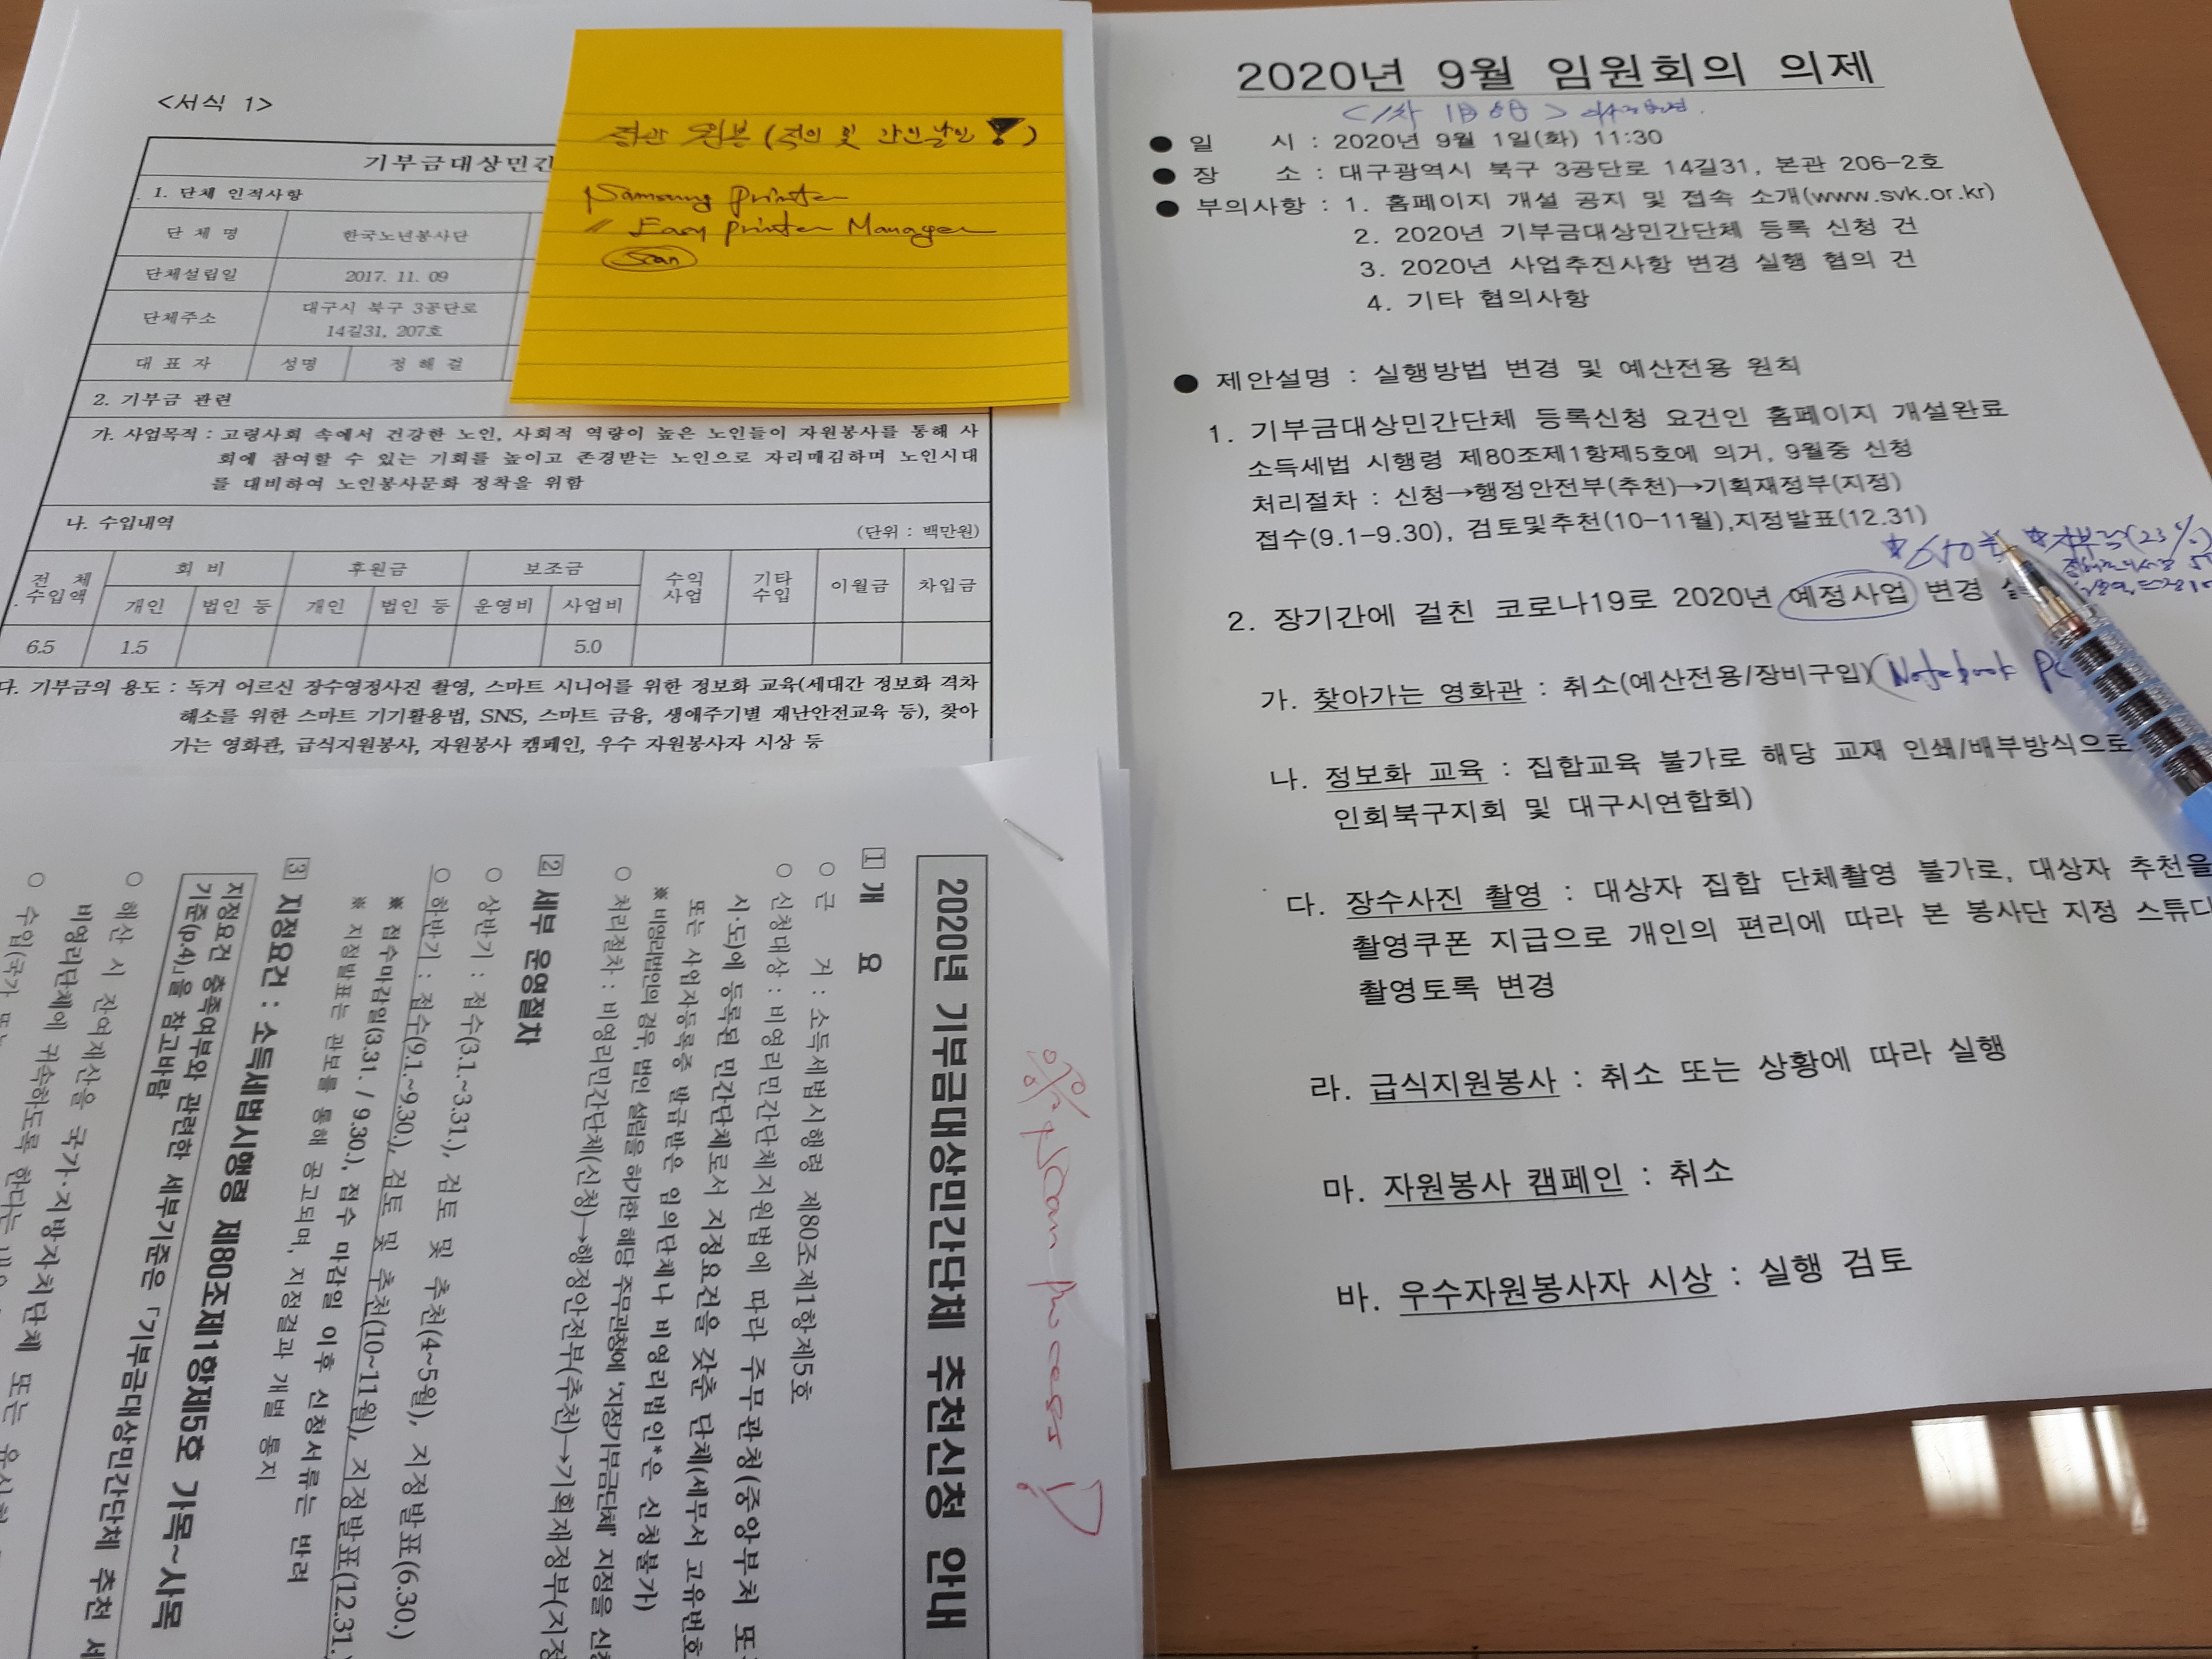 <서식 1>
기부금대상민간
1. 단체 인적사항
단 체 명 한국노년봉사단
단체설립일 2017. 11. 09
단체주소 대구시 북구 3공단로
14길31, 207호
대 표 자 성명 정 해 걸
2. 기부금 관련
가. 사업목적 : 고령사회 속에서 건강한 노인, 사회적 역량이 높은 노인들이 자원봉사를 통해 사
회에 참여할 수 있는 기회를 높이고 존경받는 노인으로 자리매김하며 노인시대
를 대비하여 노인봉사문화 정착을 위함
나. 수입내역 (단위 : 백만원)
전 체 수입액 회 비 후원금 보조금 수익 사업 기타 수입 이월금 차입금
개인 법인 등 개인 법인 등 운영비 사업비
6.5 1.5 5.0
다. 기부금의 용도 : 독거 어르신 장수영정사진 촬영, 스마트 시니어를 위한 정보화 교육(세대간 정보화 격차
해소를 위한 스마트 기기활용법, SNS, 스마트 금융, 생애주기별 재난안전교육 등), 찾아
가는 영화관, 급식지원봉사, 자원봉사 캠페인, 우수 자원봉사자 시상 등
정관 원본 (직인 및 간인날인 !)
Samsung Printer
〃 Easy printer Manager
Scan
2020년 9월 임원회의 의제
● 일 시 : 2020년 9월 1일(화) 11:30
● 장 소 : 대구광역시 북구 3공단로 14길31, 본관 206-2호
● 부의사항 : 1. 홈페이지 개설 공지 및 접속 소개(www.svk.or.kr)
2. 2020년 기부금대상민간단체 등록 신청 건
3. 2020년 사업추진사항 변경 실행 협의 건
4. 기타 협의사항
● 제안설명 : 실행방법 변경 및 예산전용 원칙
1. 기부금대상민간단체 등록신청 요건인 홈페이지 개설완료
소득세법 시행령 제80조제1항제5호에 의거, 9월중 신청
처리절차 : 신청→행정안전부(추천)→기획재정부(지정)
접수(9.1-9.30), 검토및추천(10-11월),지정발표(12.31)
2. 장기간에 걸친 코로나19로 2020년 예정사업 변경
가. 찾아가는 영화관 : 취소(예산전용/장비구입) (Notebook PC
나. 정보화 교육 : 집합교육 불가로 해당 교재 인쇄/배부방식으로
인회북구지회 및 대구시연합회)
다. 장수사진 촬영 : 대상자 집합 단체촬영 불가로, 대상자 추천을
촬영쿠폰 지급으로 개인의 편리에 따라 본 봉사단 지정 스튜디
촬영토록 변경
라. 급식지원봉사 : 취소 또는 상황에 따라 실행
마. 자원봉사 캠페인 : 취소
바. 우수자원봉사자 시상 : 실행 검토
Scan process
2020년 기부금대상민간단체 추천신청 안내
1 개 요
○ 근 거 : 소득세법시행령 제80조제1항제5호
○ 신청대상 : 비영리민간단체지원법에 따라 주무관청(중앙부처 또
시·도)에 등록된 민간단체로서 지정요건을 갖춘 단체(세무서 고유번호
또는 사업자등록증 발급받은 임의단체나 비영리법인*은 신청불가)
※ 비영리법인의 경우, 법인 설립을 허가한 해당 주무관청에 '지정기부금단체' 지정을 신청
○ 처리절차 : 비영리민간단체(신청)→행정안전부(추천)→기획재정부(지정
2 세부 운영절차
○ 상반기 : 접수(3.1.~3.31.), 검토 및 추천(4~5월), 지정발표(6.30.)
○ 하반기 : 접수(9.1.~9.30.), 검토 및 추천(10~11월), 지정발표(12.31.
※ 접수마감일(3.31. / 9.30.), 접수 마감일 이후 신청서류는 반려
※ 지정발표는 관보를 통해 공고되며, 지정결과 개별 통지
3 지정요건 : 소득세법시행령 제80조제1항제5호 가목~사목
지정요건 충족여부와 관련한 세부기준은 「기부금대상민간단체 추천 세
기준(p.4)」을 참고바람
○ 해산 시 잔여재산을 국가·지방자치단체 또는
비영리단체에 귀속하도록 한다는
○ 수입(국가